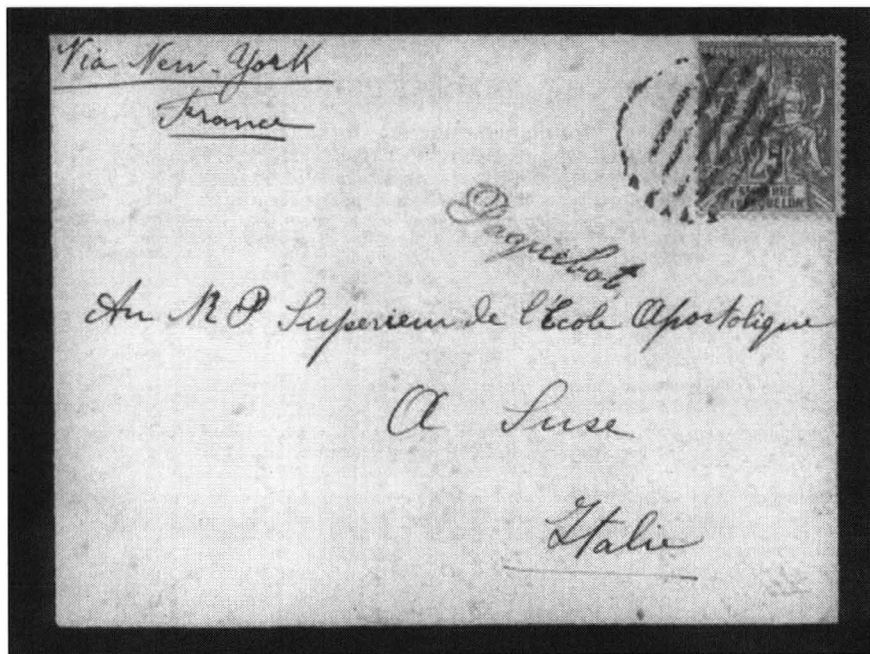 Via New-York
France
REPUBLIQUE FRANCAISE
25
ST PIERRE
MIQUELON
Paquebot
Au R P Superieur de l'École Apostolique
A Suse
Italie